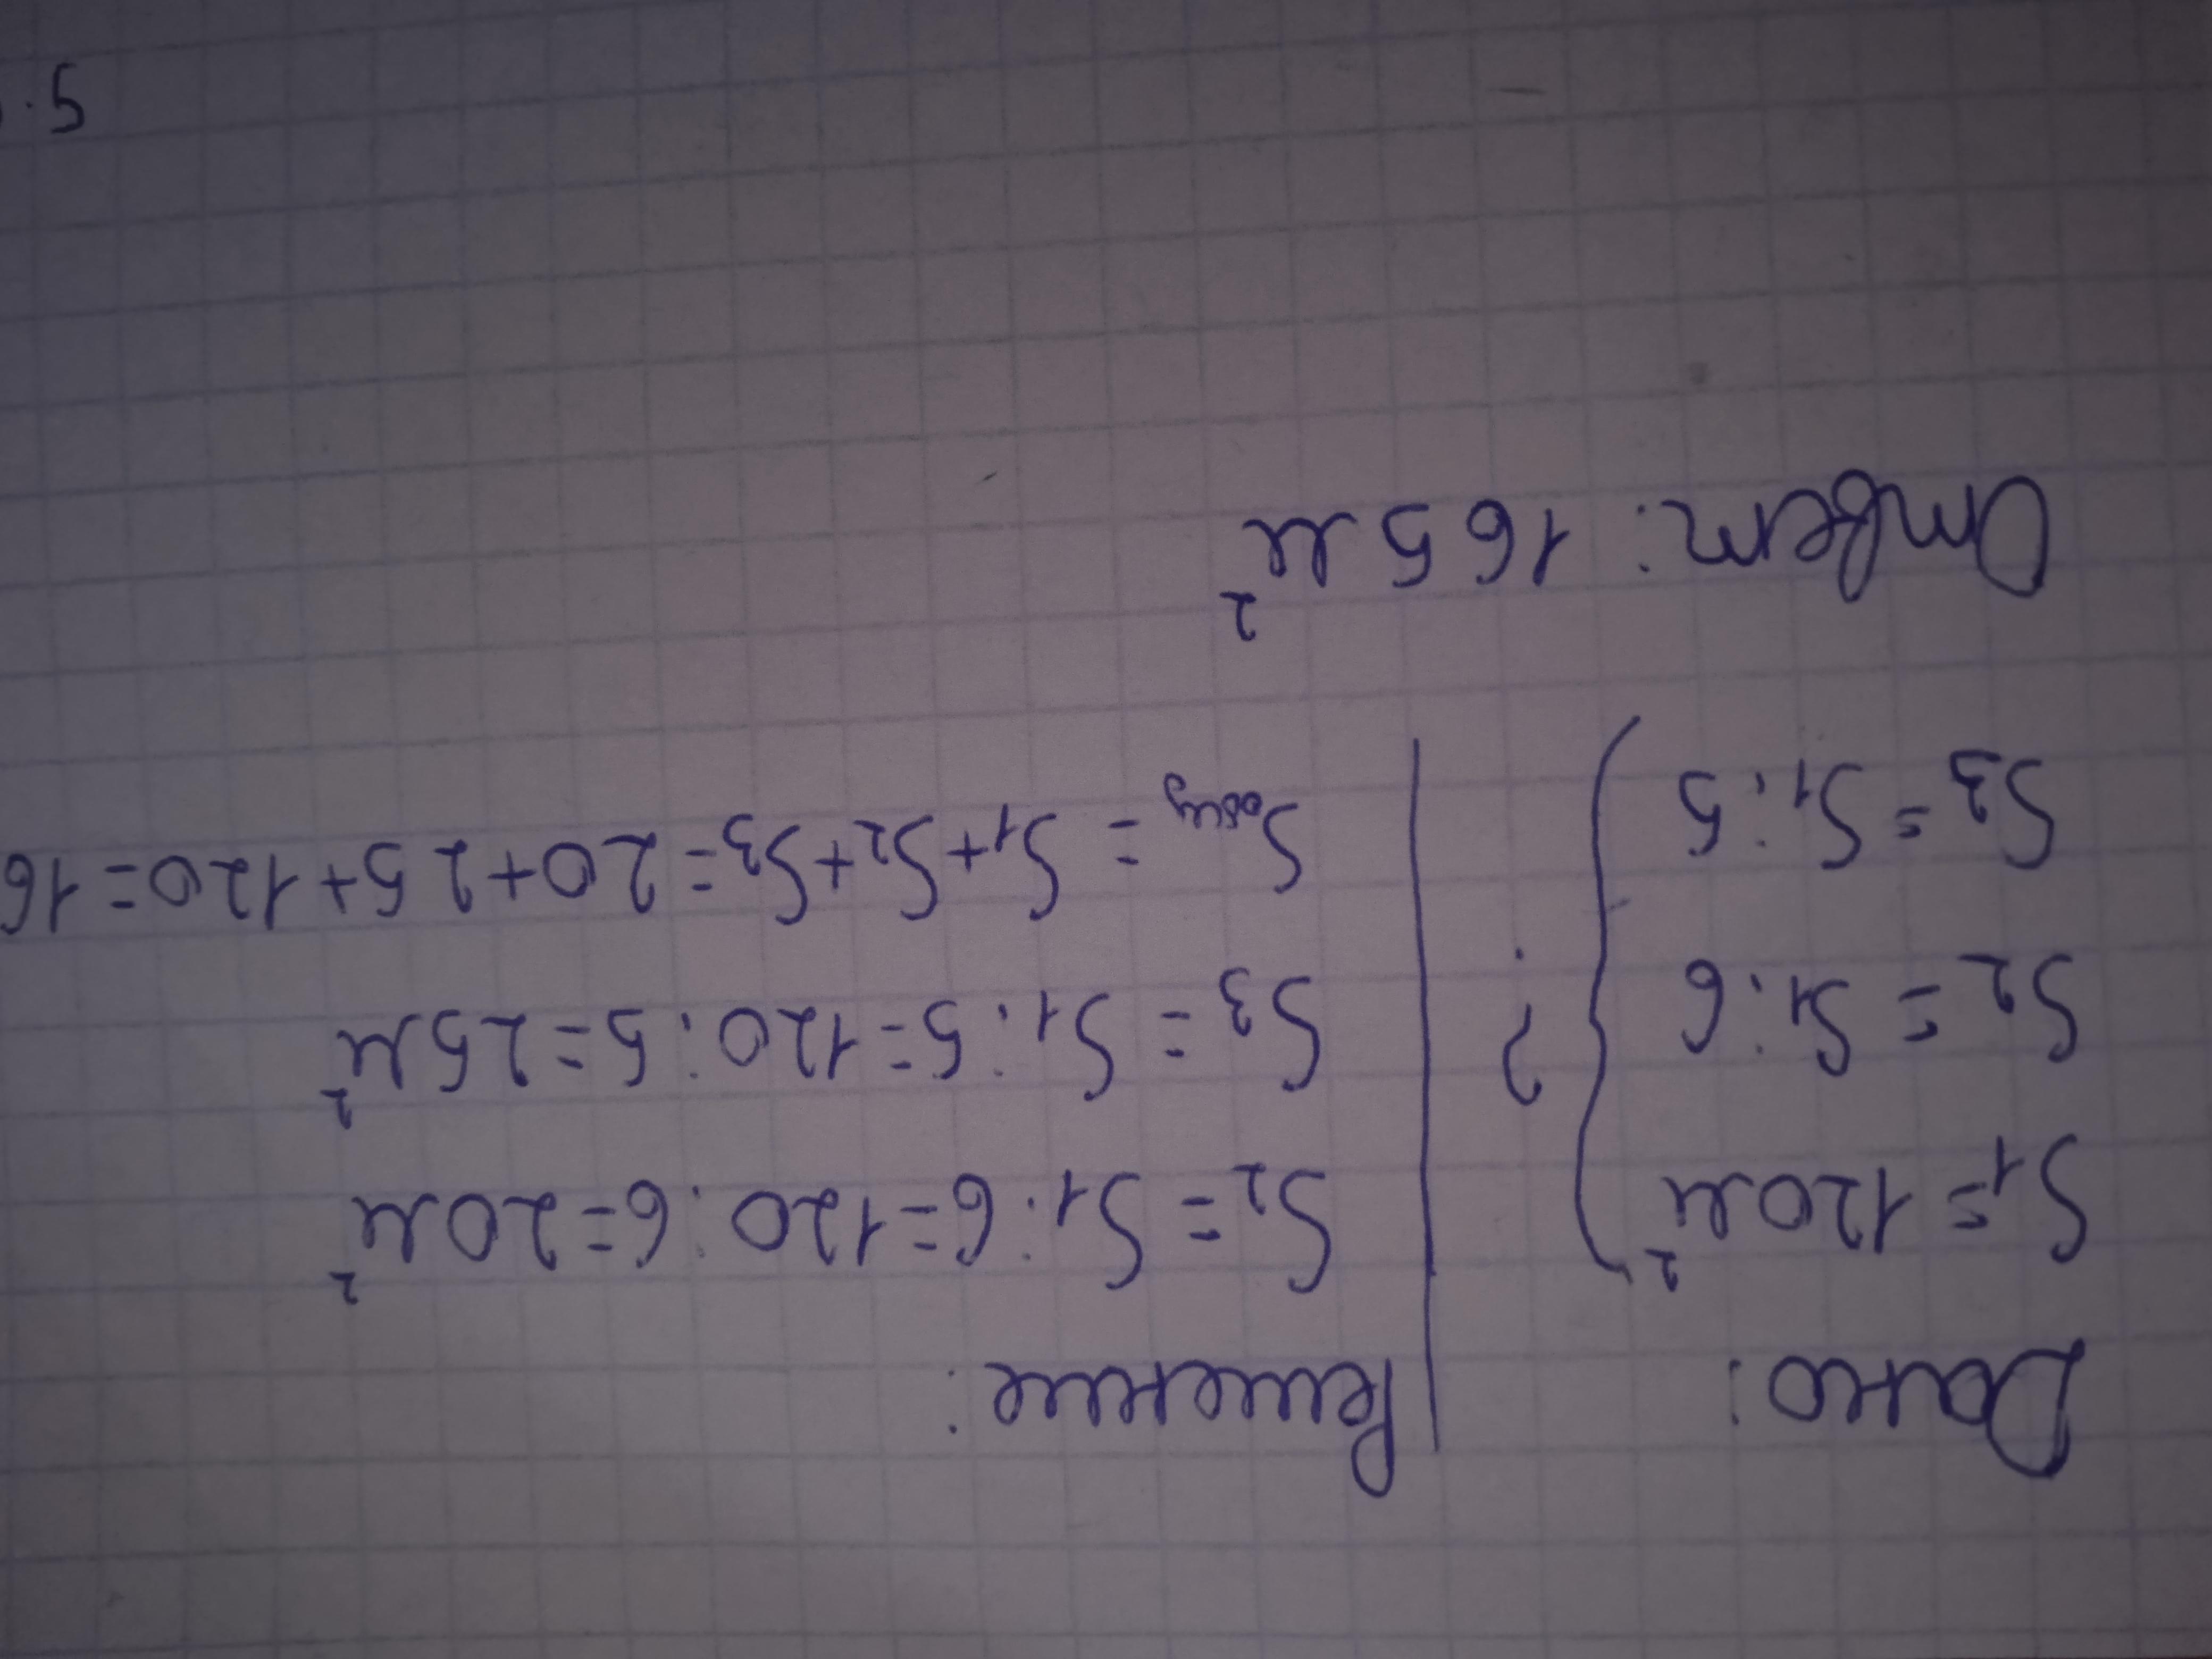 Дано:
S1=120м²
S2=S1:6
S3=S1:5
?
Решение:
S2=S1:6=120:6=20м²
S3=S1:5=120:5=25м²
Sобщ=S1+S2+S3=20+25+120=16
Ответ: 165м²